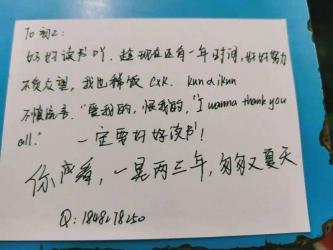 To 初二:
好好读书吖. 趁现在还有一年时间, 好好努力
不负众望, 我也稀饭 cxk. kun di kun
不慎流言. "爱我的, 恨我的, "I wanna thank you
all." 一定要好好读书!
你应看, 一晃两三年, 匆匆又夏天
Q: 1848278250